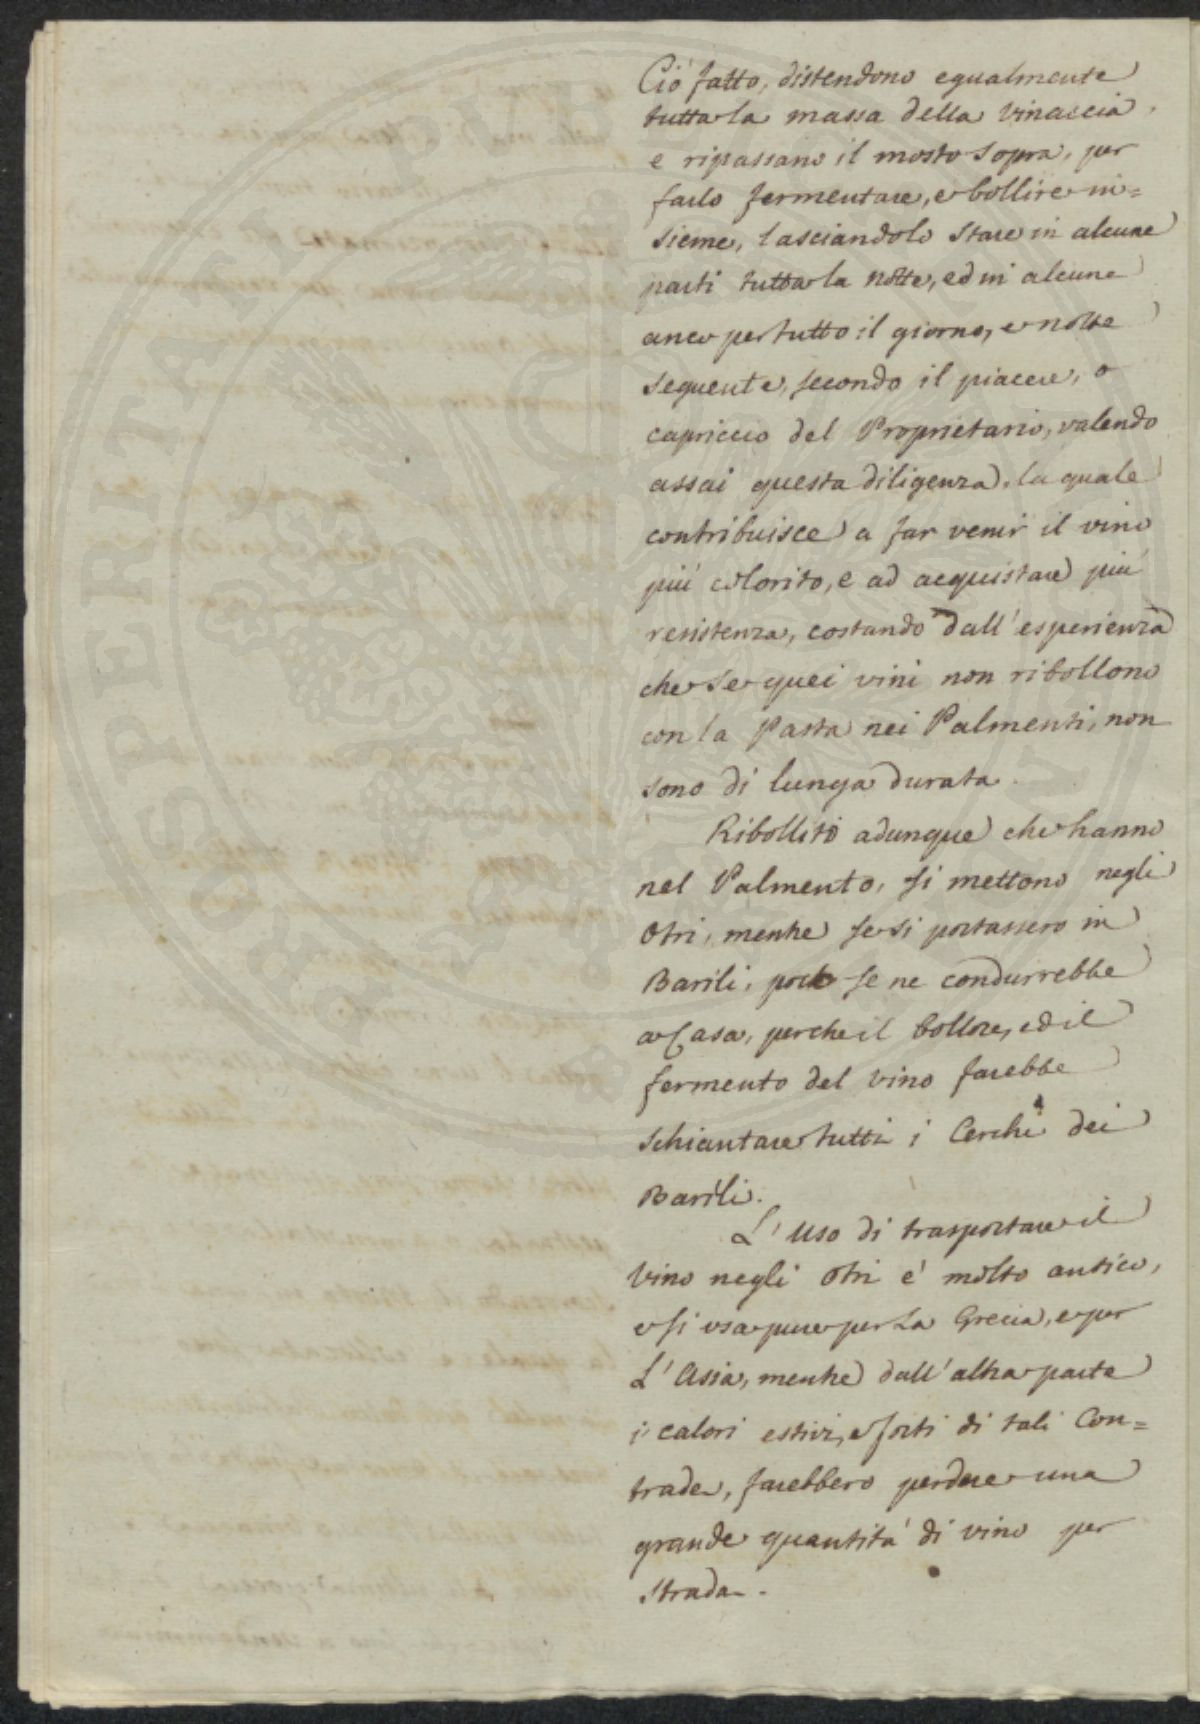 Ció fatto, distendono egualmente
tutta la massa della vinaccia,
e ripassano il mosto sopra, per
farlo fermentare, e bollire in=
sieme, lasciandolo stare in alcune
parti tutta la notte, ed in alcune
anco per tutto il giorno, e notte
sequente, secondo il piacere, o
capriccio del Proprietario, valendo
assai questa diligenza, la quale
contribuisce a far venir il vino
piú colorito, e ad acquistare piú
resistenza, costando dall'esperienza
che se quei vini non ribollono
con la Pasta nei Palmenti, non
sono di lunga durata.
Ribolliti adunque che hanno
nel Palmento, si mettono negli
Otri, mentre se si portassero in
Barili, poco se ne condurrebbe
a Casa, perche il bollore, ed il
fermento del vino farebbe
schiantare tutti i Cerchi dei
Barili.
L'uso di trasportare il
vino negli Otri é molto antico,
e si usa pure per La Grecia, e per
L'Asia, mentre dall'altra parte
i calori estivi, e forti di tali Con=
trade, farebbero perdere una
grande quantitá di vino per
strada.
PROSPERITATI